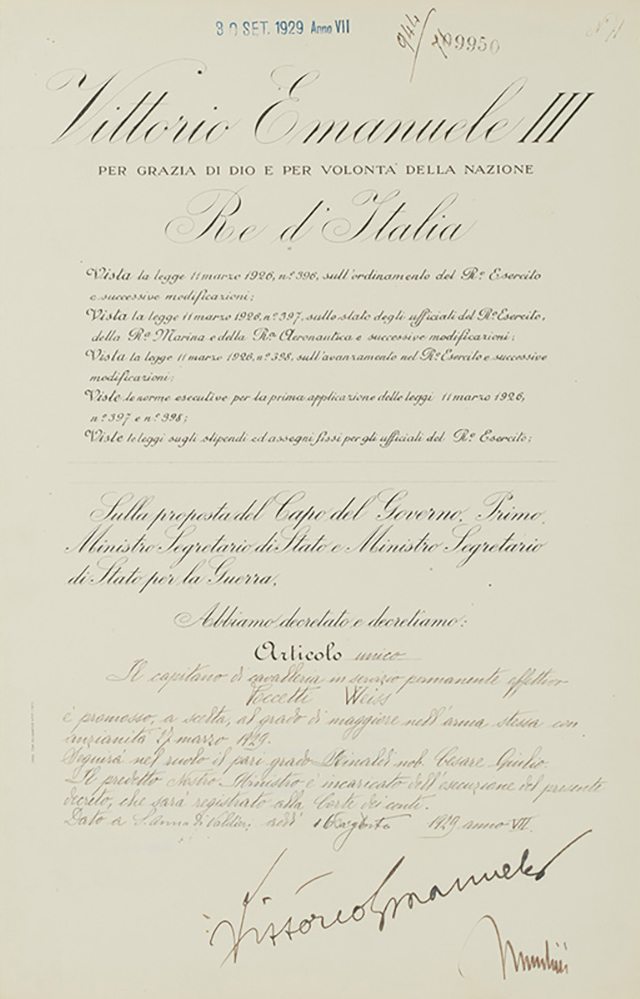 30 SET. 1929 Anno VII
944
9950
Vittorio Emanuele III
PER GRAZIA DI DIO E PER VOLONTA' DELLA NAZIONE
Re d'Italia
Vista la legge 11 marzo 1926, n.º 396, sull'ordinamento del Rº Esercito
e successive modificazioni;
Vista la legge 11 marzo 1926, n.º 397, sullo stato degli ufficiali del Rº Esercito,
della Rª Marina e della Rª Aeronautica e successive modificazioni;
Vista la legge 11 marzo 1926, n.º 398, sull'avanzamento nel Rº Esercito e successive
modificazioni;
Viste le norme esecutive per la prima applicazione delle leggi 11 marzo 1926,
n.º 397 e n.º 398;
Viste le leggi sugli stipendi ed assegni fissi per gli ufficiali del Rº Esercito;
Sulla proposta del Capo del Governo, Primo
Ministro Segretario di Stato e Ministro Segretario
di Stato per la Guerra.
Abbiamo decretato e decretiamo:
Articolo unico
Il capitano di cavalleria in servizio permanente effettivo
Weiss
è promosso, a scelta, al grado di maggiore nell'arma stessa con
anzianità 17 marzo 1929.
Seguirà nel ruolo il pari grado Rinaldi nob. Cesare Giulio.
Il predetto Nostro Ministro è incaricato dell'esecuzione del presente
decreto, che sarà registrato alla Corte dei conti.
Dato a S. Anna di Valdieri addì 16 agosto 1929 anno VII.
Vittorio Emanuele
Mussolini